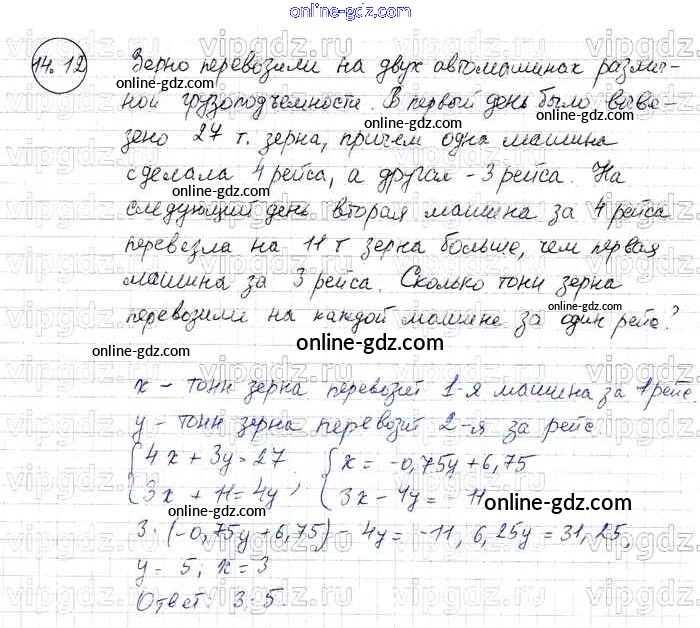 online-gdz.com
14.12 Зерно перевозили на двух автомашинах различ-
ной грузоподъемности. В первый день было выве-
зено 27 т. зерна, причем одна машина
сделала 4 рейса, а другая - 3 рейса. На
следующий день вторая машина за 4 рейса
перевезла на 11 т зерна больше, чем первая
машина за 3 рейса. Сколько тонн зерна
перевозили на каждой машине за один рейс?
online-gdz.com
x - тонн зерна перевозит 1-я машина за 1 рейс.
y - тонн зерна перевозит 2-я за рейс.
{4x + 3y = 27 {x = -0,75y + 6,75
{3x + 11 = 4y ; {3x - 4y = -11
online-gdz.com
3·(-0,75y + 6,75) - 4y = -11, 6,25y = 31,25,
y = 5; x = 3
Ответ: 3; 5.
online-gdz.com